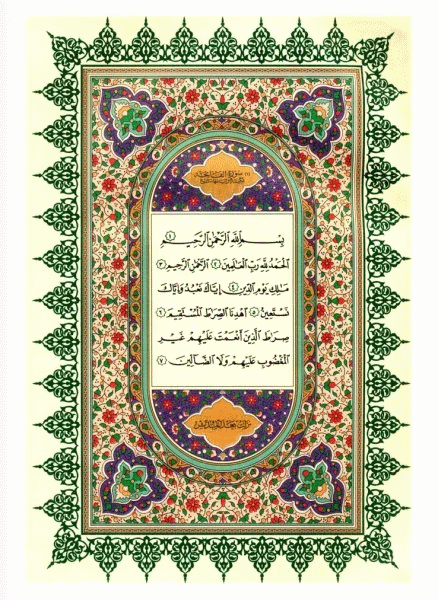 سورة الفاتحة
بِسْمِ اللَّهِ الرَّحْمَٰنِ الرَّحِيمِ ١
الْحَمْدُ لِلَّهِ رَبِّ الْعَالَمِينَ ٢ الرَّحْمَٰنِ الرَّحِيمِ ٣
مَالِكِ يَوْمِ الدِّينِ ٤ إِيَّاكَ نَعْبُدُ وَإِيَّاكَ
نَسْتَعِينُ ٥ اهْدِنَا الصِّرَاطَ الْمُسْتَقِيمَ ٦
صِرَاطَ الَّذِينَ أَنْعَمْتَ عَلَيْهِمْ غَيْرِ
الْمَغْضُوبِ عَلَيْهِمْ وَلَا الضَّالِّينَ ٧